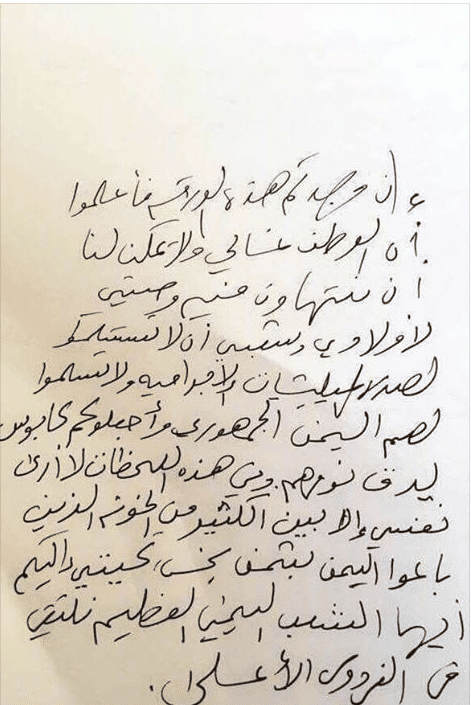 إن وجدتم هذه الورقه فأعلموا
أن الوطن غالي ولا يمكن لنا
أن نتهاون فيه وصيتي
لأولادي وشعبي أن لا تستسلمو
لهذه المليشيات الإجراميه ولا تسلموا
لهم اليمن الجمهوري وأجعلوكم كابوس
يدق نومهم وفي هذه اللحظات لا أرى
نفسي إلا بين الكثير من الخونه الذين
باعوا اليمن بثمن بخس تحيتي إليكم
أيها الشعب اليمني العظيم نلتقي
في الفردوس الأعلى.